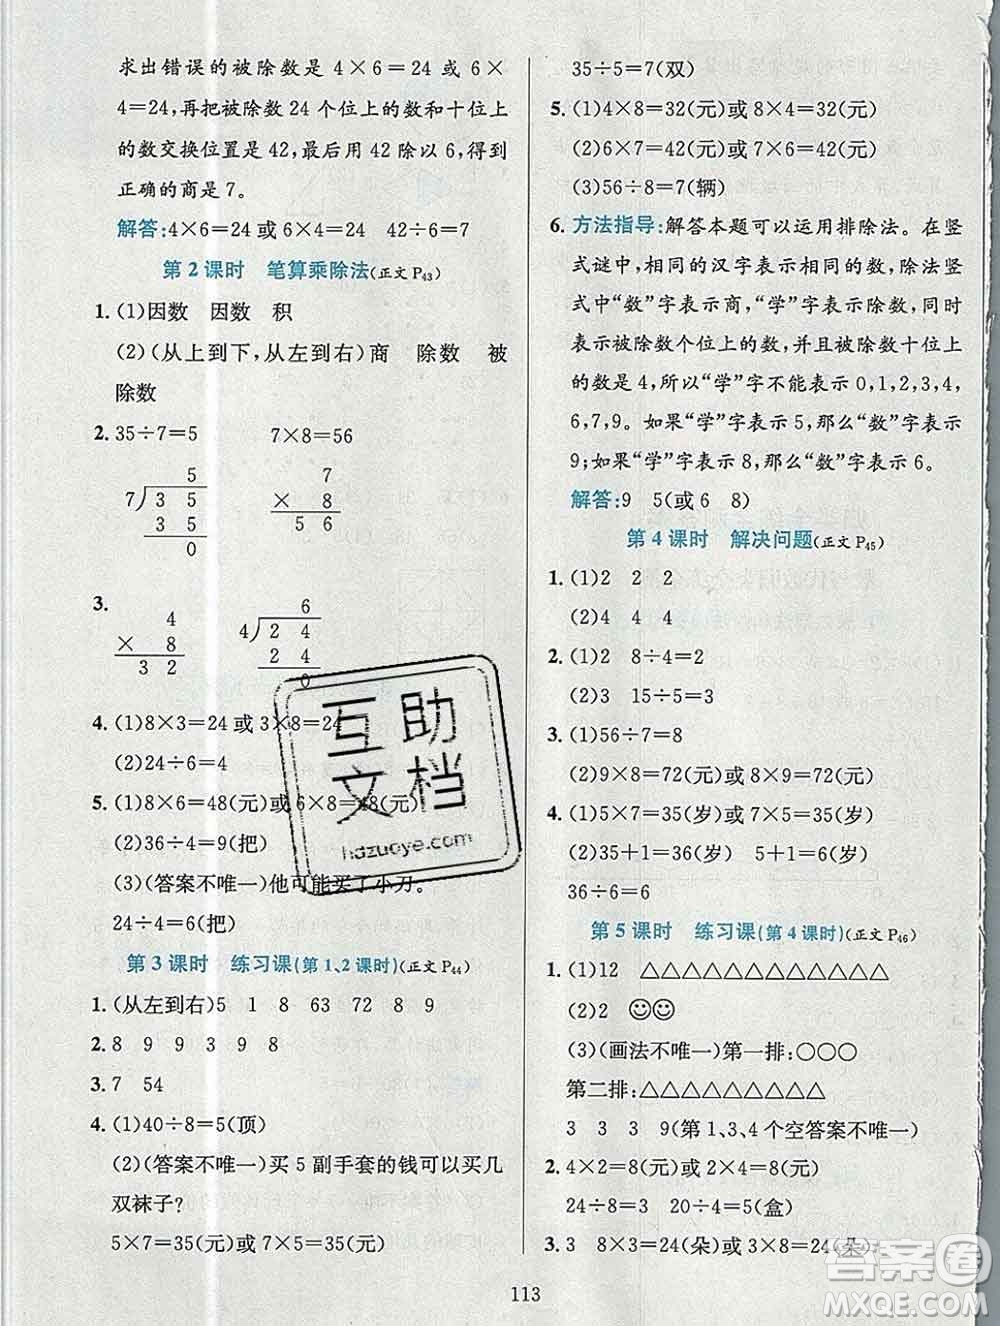 求出错误的被除数是 4×6=24 或 6×
4=24,再把被除数 24 个位上的数和十位上
的数交换位置是 42,最后用 42 除以 6,得到
正确的商是 7。
解答:4×6=24 或 6×4=24 42÷6=7
第 2 课时 笔算乘除法(正文 P43)
1. (1)因数 因数 积
(2)(从上到下,从左到右)商 除数 被
除数
2. 35÷7=5 7×8=56
5
7)3 5
3 5
0
7
× 8
5 6
3.
4
× 8
3 2
6
4)2 4
2 4
0
4. (1)8×3=24 或 3×8=24
(2)24÷6=4
5. (1)8×6=48(元)或 6×8=48(元)
(2)36÷4=9(把)
(3)(答案不唯一)他可能买了小刀。
24÷4=6(把)
第 3 课时 练习课(第 1、2 课时)(正文 P44)
1. (从左到右)5 1 8 63 72 8 9
2. 8 9 9 3 9 8
3. 7 54
4. (1)40÷8=5(顶)
(2)(答案不唯一)买 5 副手套的钱可以买几
双袜子?
5×7=35(元)或 7×5=35(元)
35÷5=7(双)
5. (1)4×8=32(元)或 8×4=32(元)
(2)6×7=42(元)或 7×6=42(元)
(3)56÷8=7(辆)
6. 方法指导:解答本题可以运用排除法。在竖
式谜中,相同的汉字表示相同的数,除法竖
式中“数”字表示商,“学”字表示除数,同时
表示被除数个位上的数,并且被除数十位上
的数是 4,所以“学”字不能表示 0,1,2,3,4,
6,7,9。如果“学”字表示 5,那么“数”字表示
9;如果“学”字表示 8,那么“数”字表示 6。
解答:9 5(或 6 8)
第 4 课时 解决问题(正文 P45)
1. (1)2 2 2
(2)4 4 4
2. (1)2 8÷4=2
(2)3 15÷5=3
3. (1)56÷7=8
(2)9×8=72(元)或 8×9=72(元)
4. (1)5×7=35(岁)或 7×5=35(岁)
(2)35+1=36(岁) 5+1=6(岁)
36÷6=6
第 5 课时 练习课(第 4 课时)(正文 P46)
1. (1)12 △△△△△△△△△△△△
(2)2 ☺☺
(3)(画法不唯一)第一排:○○○
第二排:△△△△△△△△△
3 3 3 9(第 1、3、4 个空答案不唯一)
2. 4×2=8(元)或 2×4=8(元)
24÷8=3(元) 20÷4=5(盒)
3. 3 8×3=24(朵)或 3×8=24(朵)
113
互助
文档
hdzuoye.com
答案圈
MXQE.COM